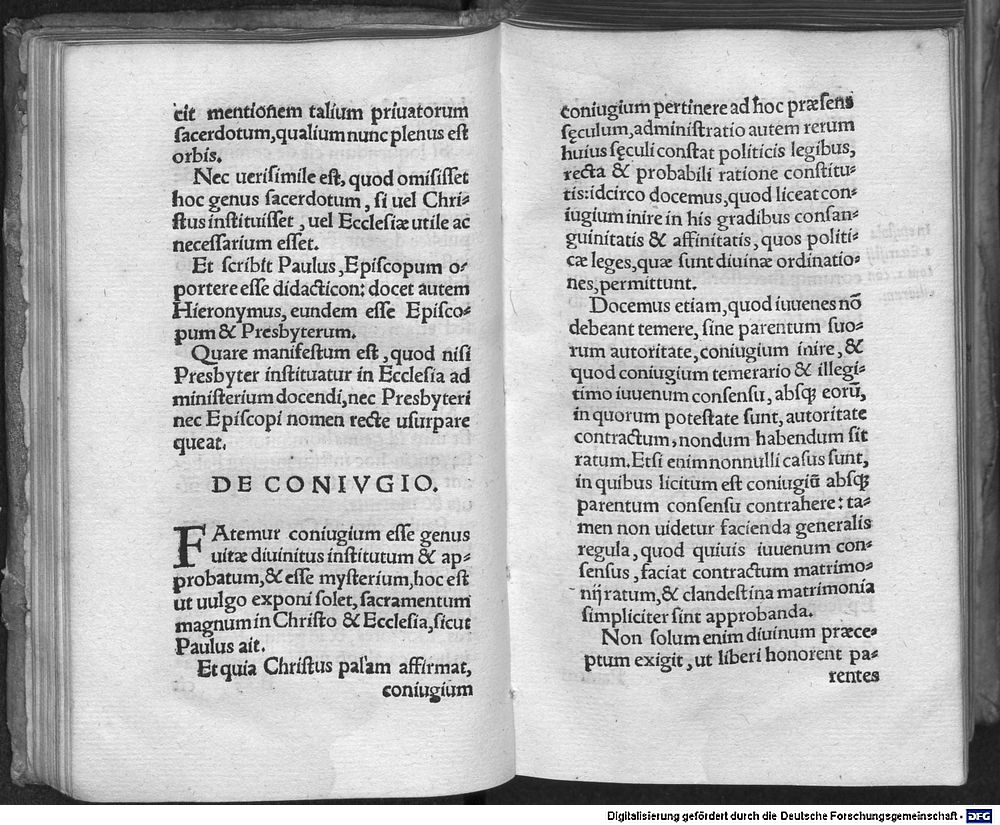 cit mentionem talium priuatorum
sacerdotum, qualium nunc plenus est
orbis.
Nec uerisimile est, quod omisisset
hoc genus sacerdotum, si uel Chri-
stus instituisset, uel Ecclesiæ utile ac
necessarium esset.
Et scribit Paulus, Episcopum o-
portere esse didacticon: docet autem
Hieronymus, eundem esse Episco-
pum & Presbyterum.
Quare manifestum est, quod nisi
Presbyter instituatur in Ecclesia ad
ministerium docendi, nec Presbyteri
nec Episcopi nomen recte usurpare
queat.
DE CONIVGIO.
FAtemur coniugium esse genus
uitæ diuinitus institutum & ap-
probatum, & esse mysterium, hoc est
ut uulgo exponi solet, sacramentum
magnum in Christo & Ecclesia, sicut
Paulus ait.
Et quia Christus palam affirmat,
coniugium
coniugium pertinere ad hoc præsens
sęculum, administratio autem rerum
huius sęculi constat politicis legibus,
recta & probabili ratione constitu-
tis: idcirco docemus, quod liceat con-
iugium inire in his gradibus consan-
guinitatis & affinitatis, quos politi-
cæ leges, quæ sunt diuinæ ordinatio-
nes, permittunt.
Docemus etiam, quod iuuenes nō
debeant temere, sine parentum suo-
rum autoritate, coniugium inire, &
quod coniugium temerario & illegi-
timo iuuenum consensu, absqꝫ eorū,
in quorum potestate sunt, autoritate
contractum, nondum habendum sit
ratum. Etsi enim nonnulli casus sunt,
in quibus licitum est coniugiū absqꝫ
parentum consensu contrahere: ta-
men non uidetur facienda generalis
regula, quod quiuis iuuenum con-
sensus, faciat contractum matrimo-
nij ratum, & clandestina matrimonia
simpliciter sint approbanda.
Non solum enim diuinum præce-
ptum exigit, ut liberi honorent pa-
rentes
Digitalisierung gefördert durch die Deutsche Forschungsgemeinschaft - DFG